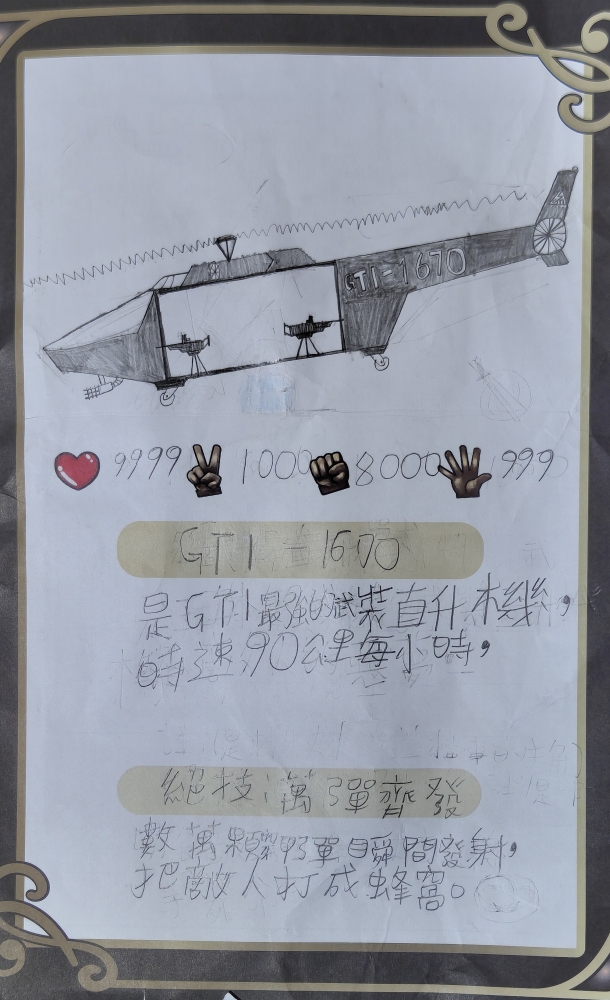 GTI-1670
9999 1000 8000 999
GTI-1670
是GTI最強的武裝直升機，
時速90公里每小時，
絕技：萬彈齊發
數萬顆子彈瞬間發射，
把敵人打成蜂窩。